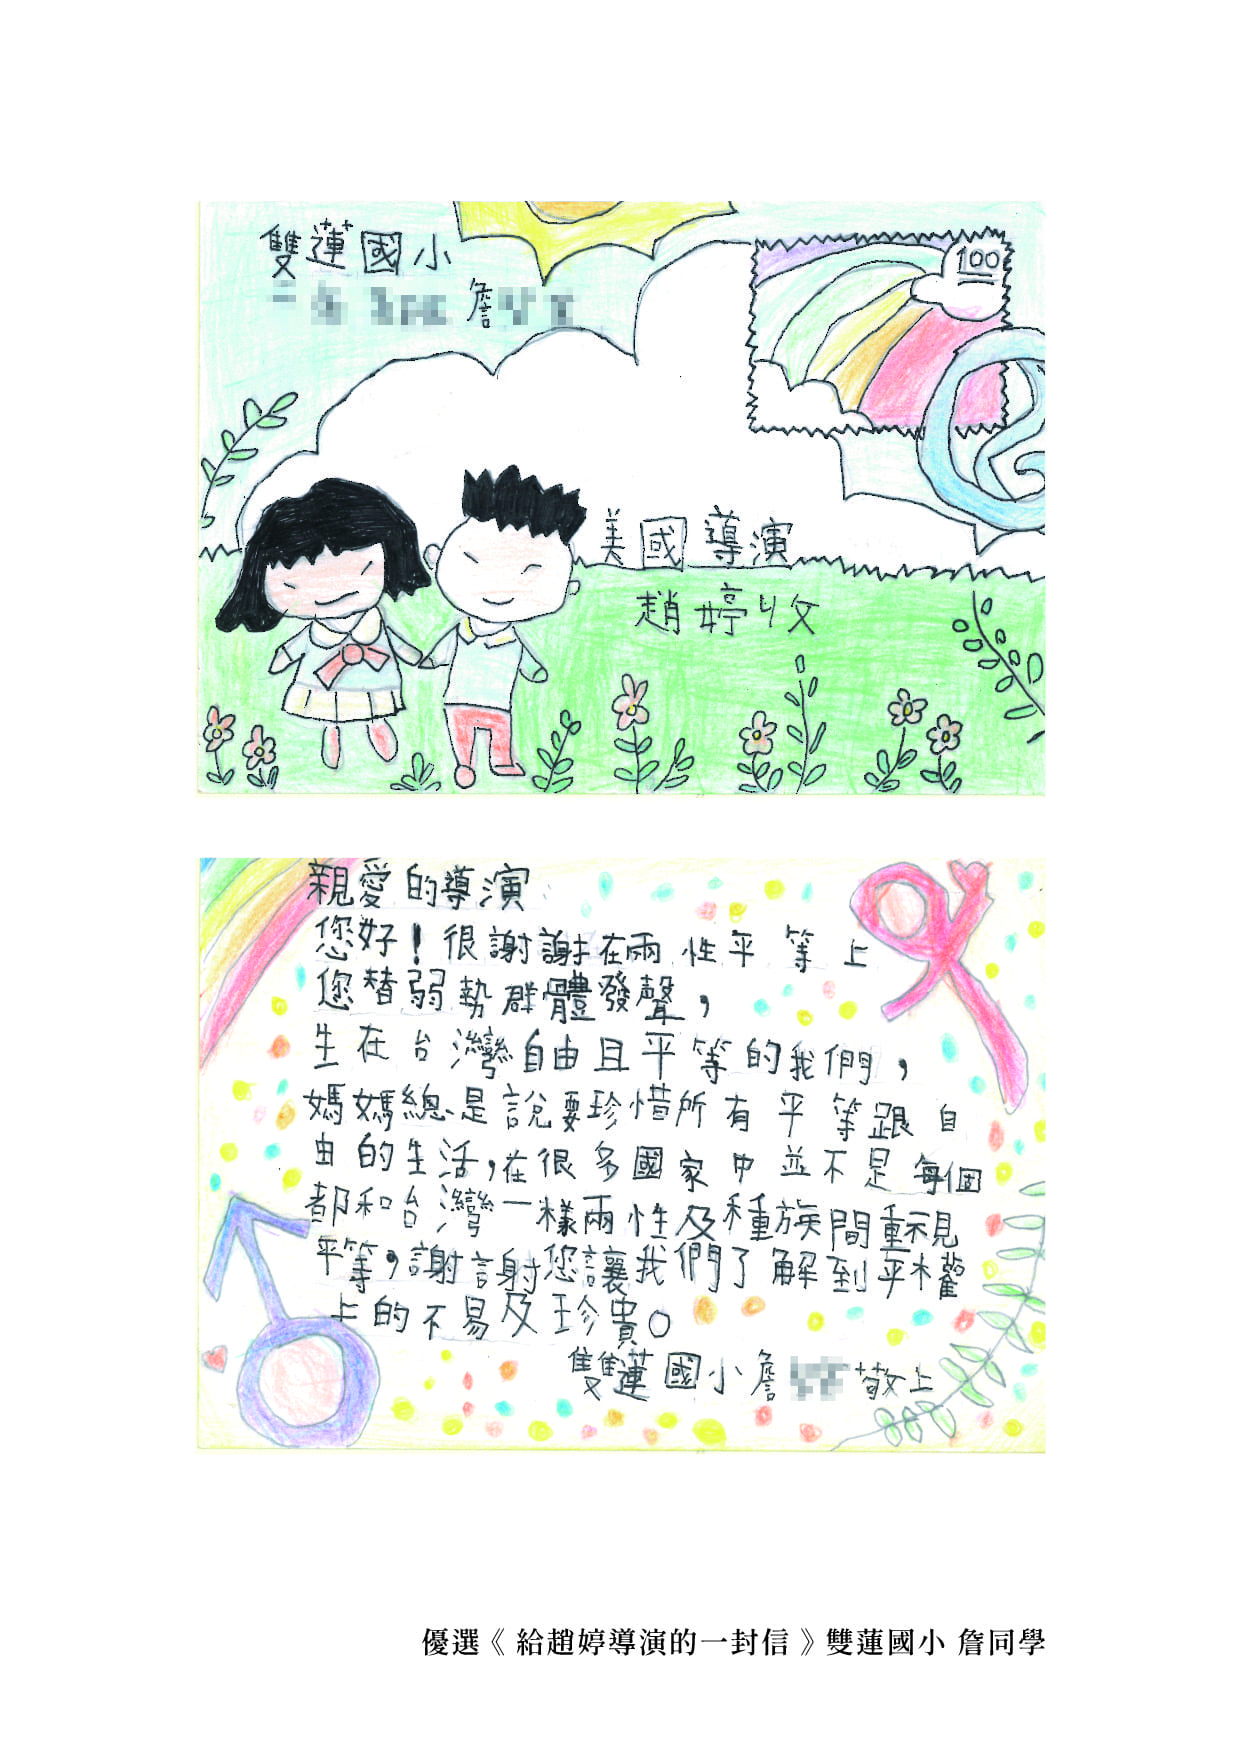 雙蓮國小
詹
100
美國導演
趙婷收
親愛的導演
您好!很謝謝在兩性平等上
您替弱勢群體發聲,
生在台灣自由且平等的我們,
媽媽總是說要珍惜所有平等跟自
由的生活,在很多國家中並不是每個
都和台灣一樣兩性及種族間重視
平等,謝謝您讓我們了解到平權
上的不易及珍貴。
雙蓮國小詹 敬上
優選《 給趙婷導演的一封信 》雙蓮國小 詹同學